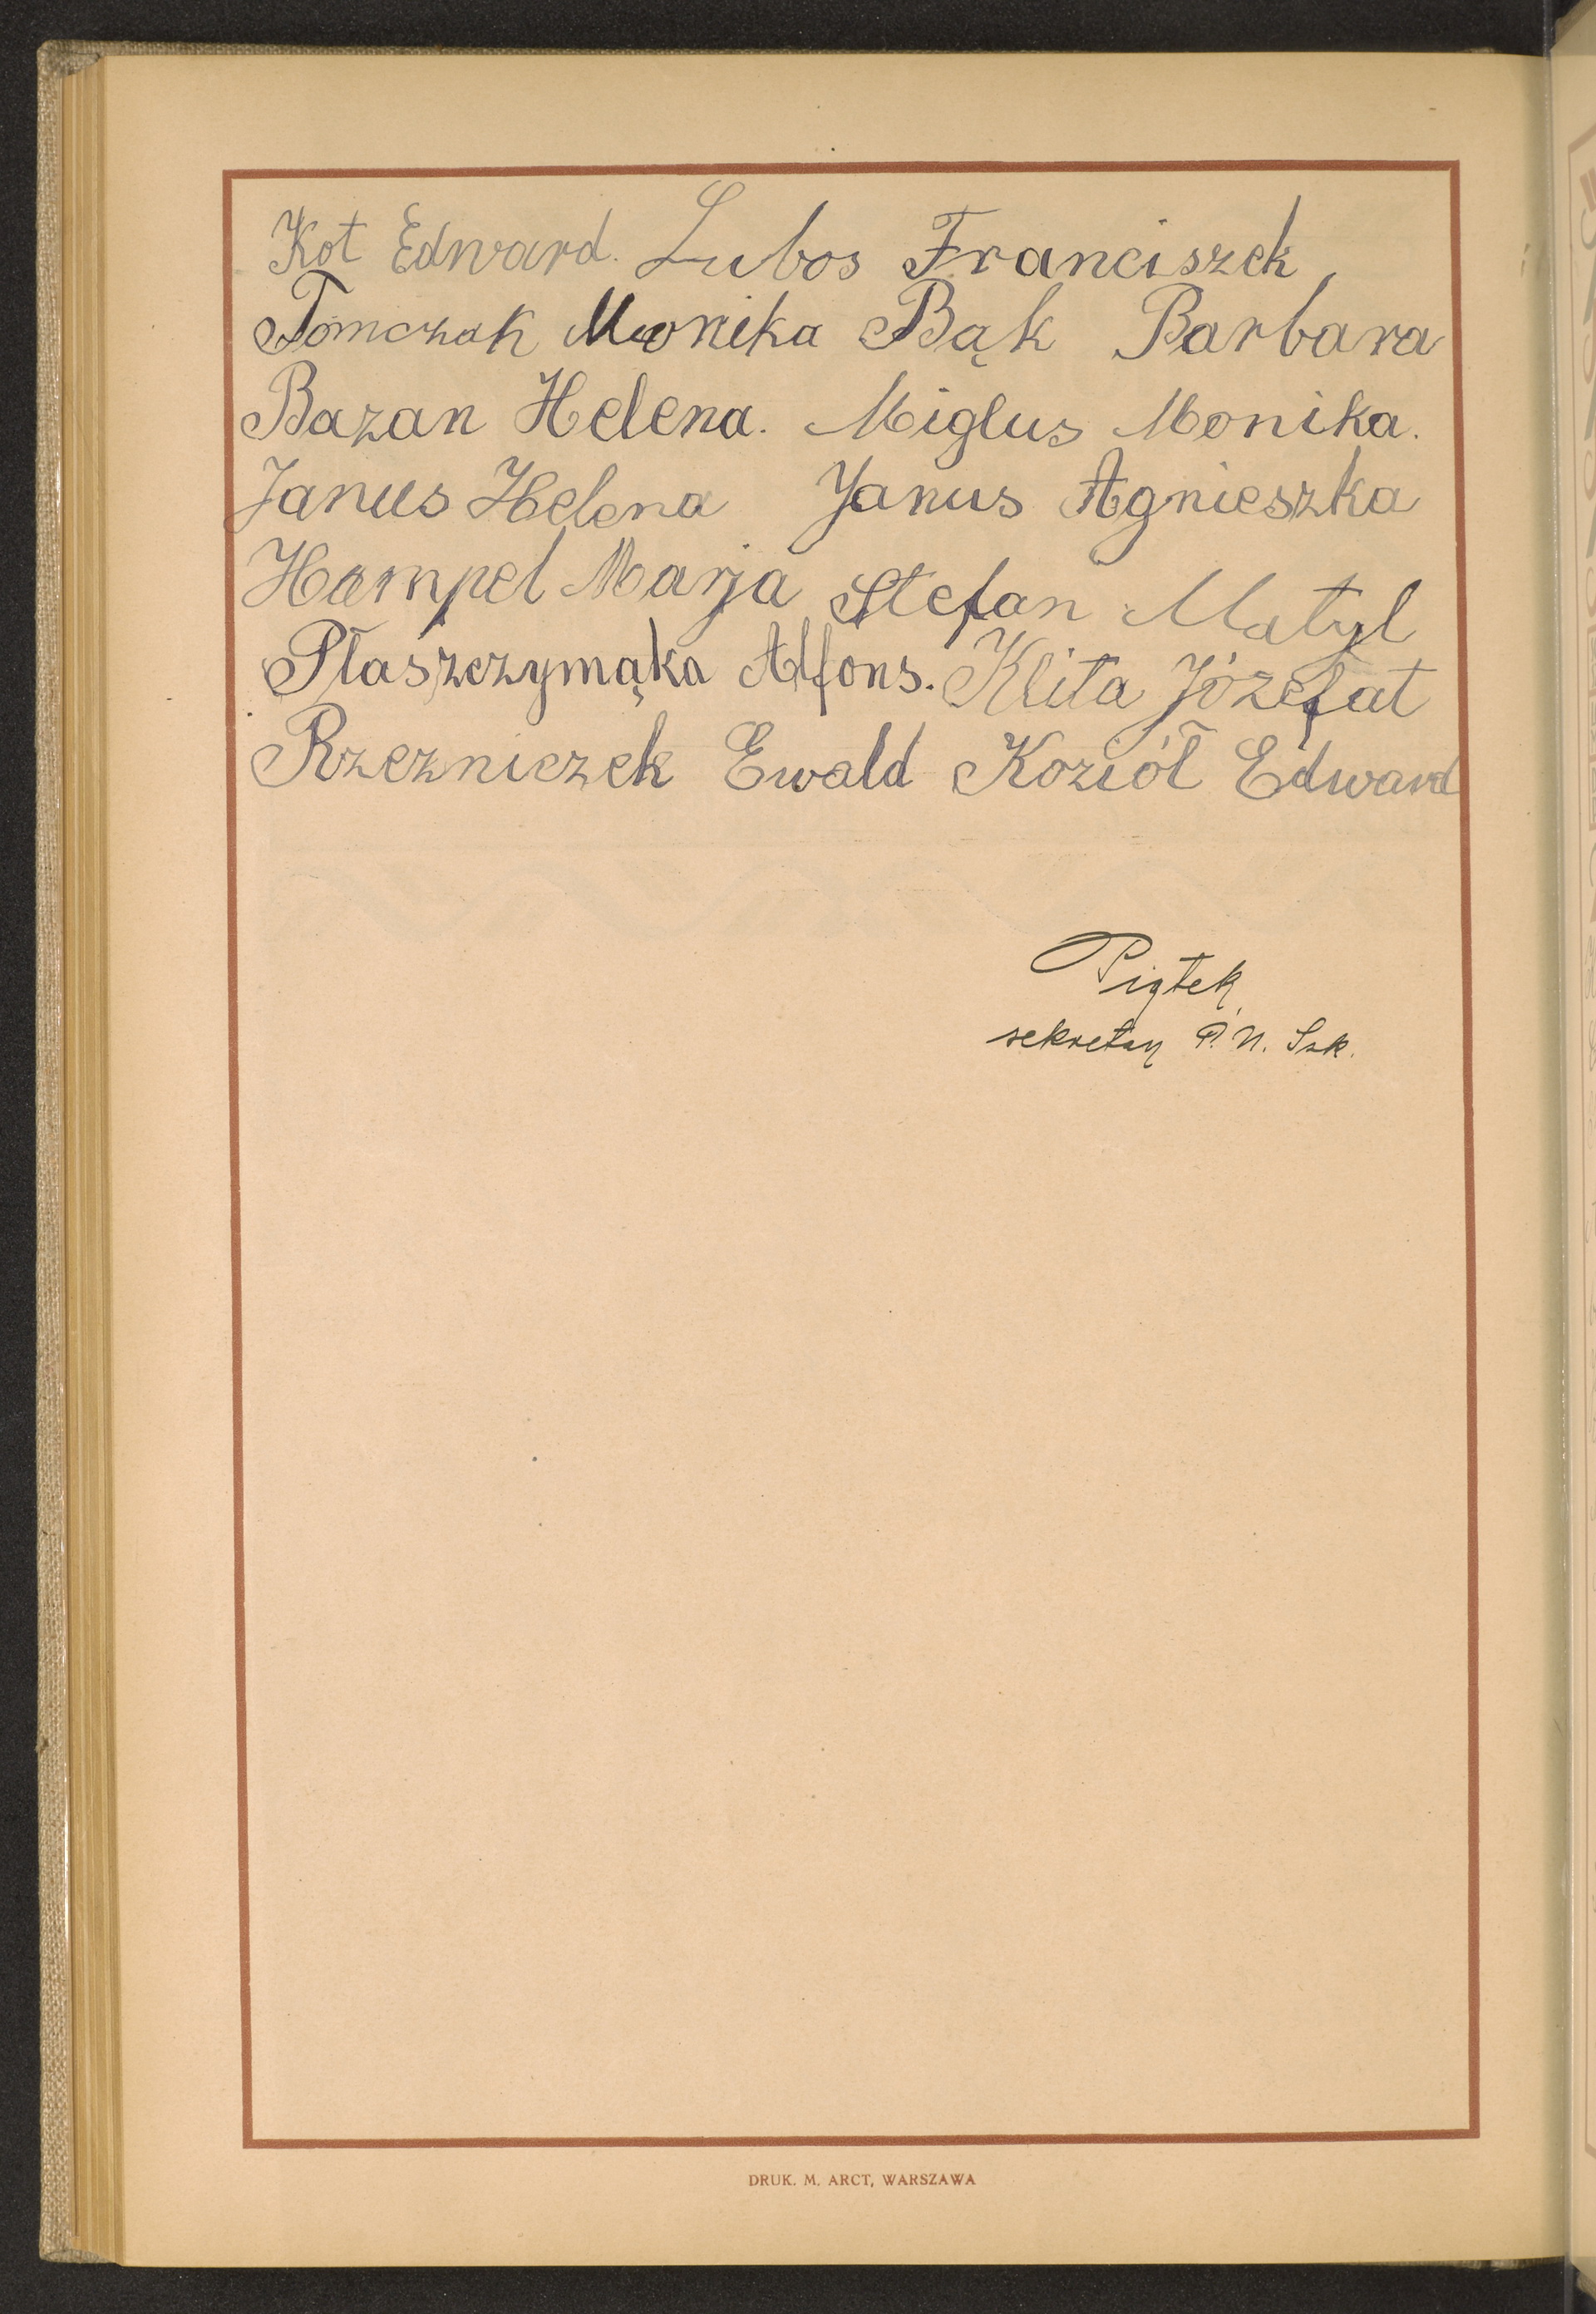 Kot Edward. Lubos Franciszek
Tomczak Monika Bąk Barbara
Bazan Helena. Miglus Monika.
Janus Helena Janus Agnieszka
Hampel Marja Stefan Matyl
Płaszczymąka Alfons. Klita Józefat
Rzezniczek Ewald Kozioł Edward
Piątek
sekretarz P. N. Szk.
DRUK. M. ARCT, WARSZAWA